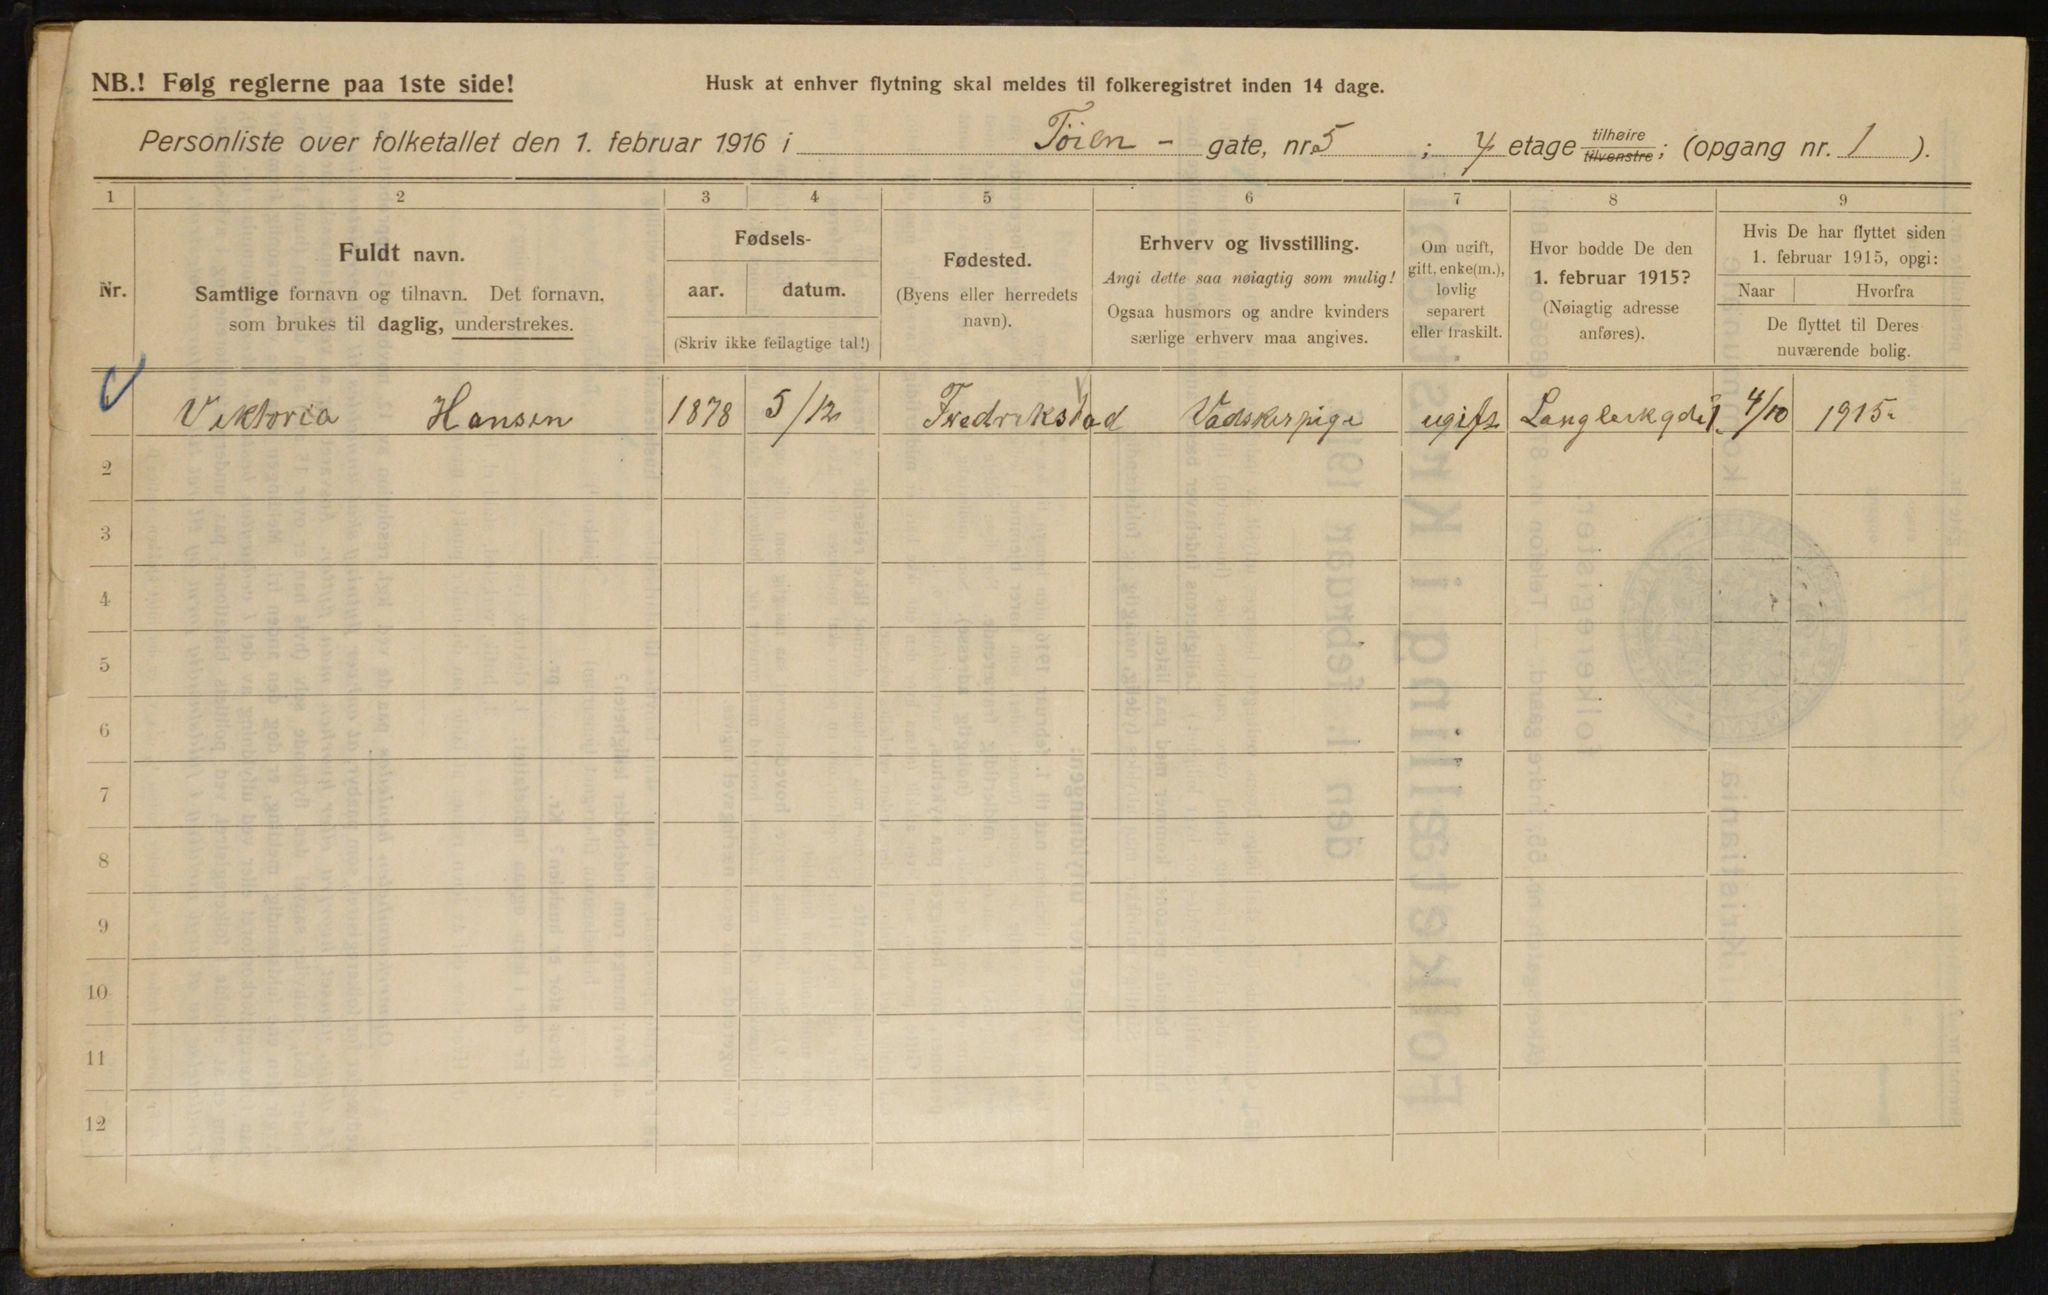 NB.! Følg reglerne paa 1ste side!
Husk at enhver flytning skal meldes til folkeregistret inden 14 dage.
Personliste over folketallet den 1. februar 1916 i Töien - gate, nr. 5 ; 4 etage tilhøire tilvenstre ; (opgang nr. 1 ).
1 2 3 4 5 6 7 8 9
Nr.
Fuldt navn.
Samtlige fornavn og tilnavn. Det fornavn,
som brukes til daglig, understrekes.
Fødsels-
aar. datum.
(Skriv ikke feilagtige tal!)
Fødested.
(Byens eller herredets
navn).
Erhverv og livsstilling.
Angi dette saa nøiagtig som mulig!
Ogsaa husmors og andre kvinders
særlige erhverv maa angives.
Om ugift,
gift, enke(m.),
lovlig
separert
eller fraskilt.
Hvor bodde De den
1. februar 1915?
(Nøiagtig adresse
anføres).
Hvis De har flyttet siden
1. februar 1915, opgi:
Naar Hvorfra
De flyttet til Deres
nuværende bolig.
Viktoria Hansen 1878 5/12 Fredrikstad Vadskerpige ugift 4/10 1915
2
3
4
5
6
7
8
9
10
11
12